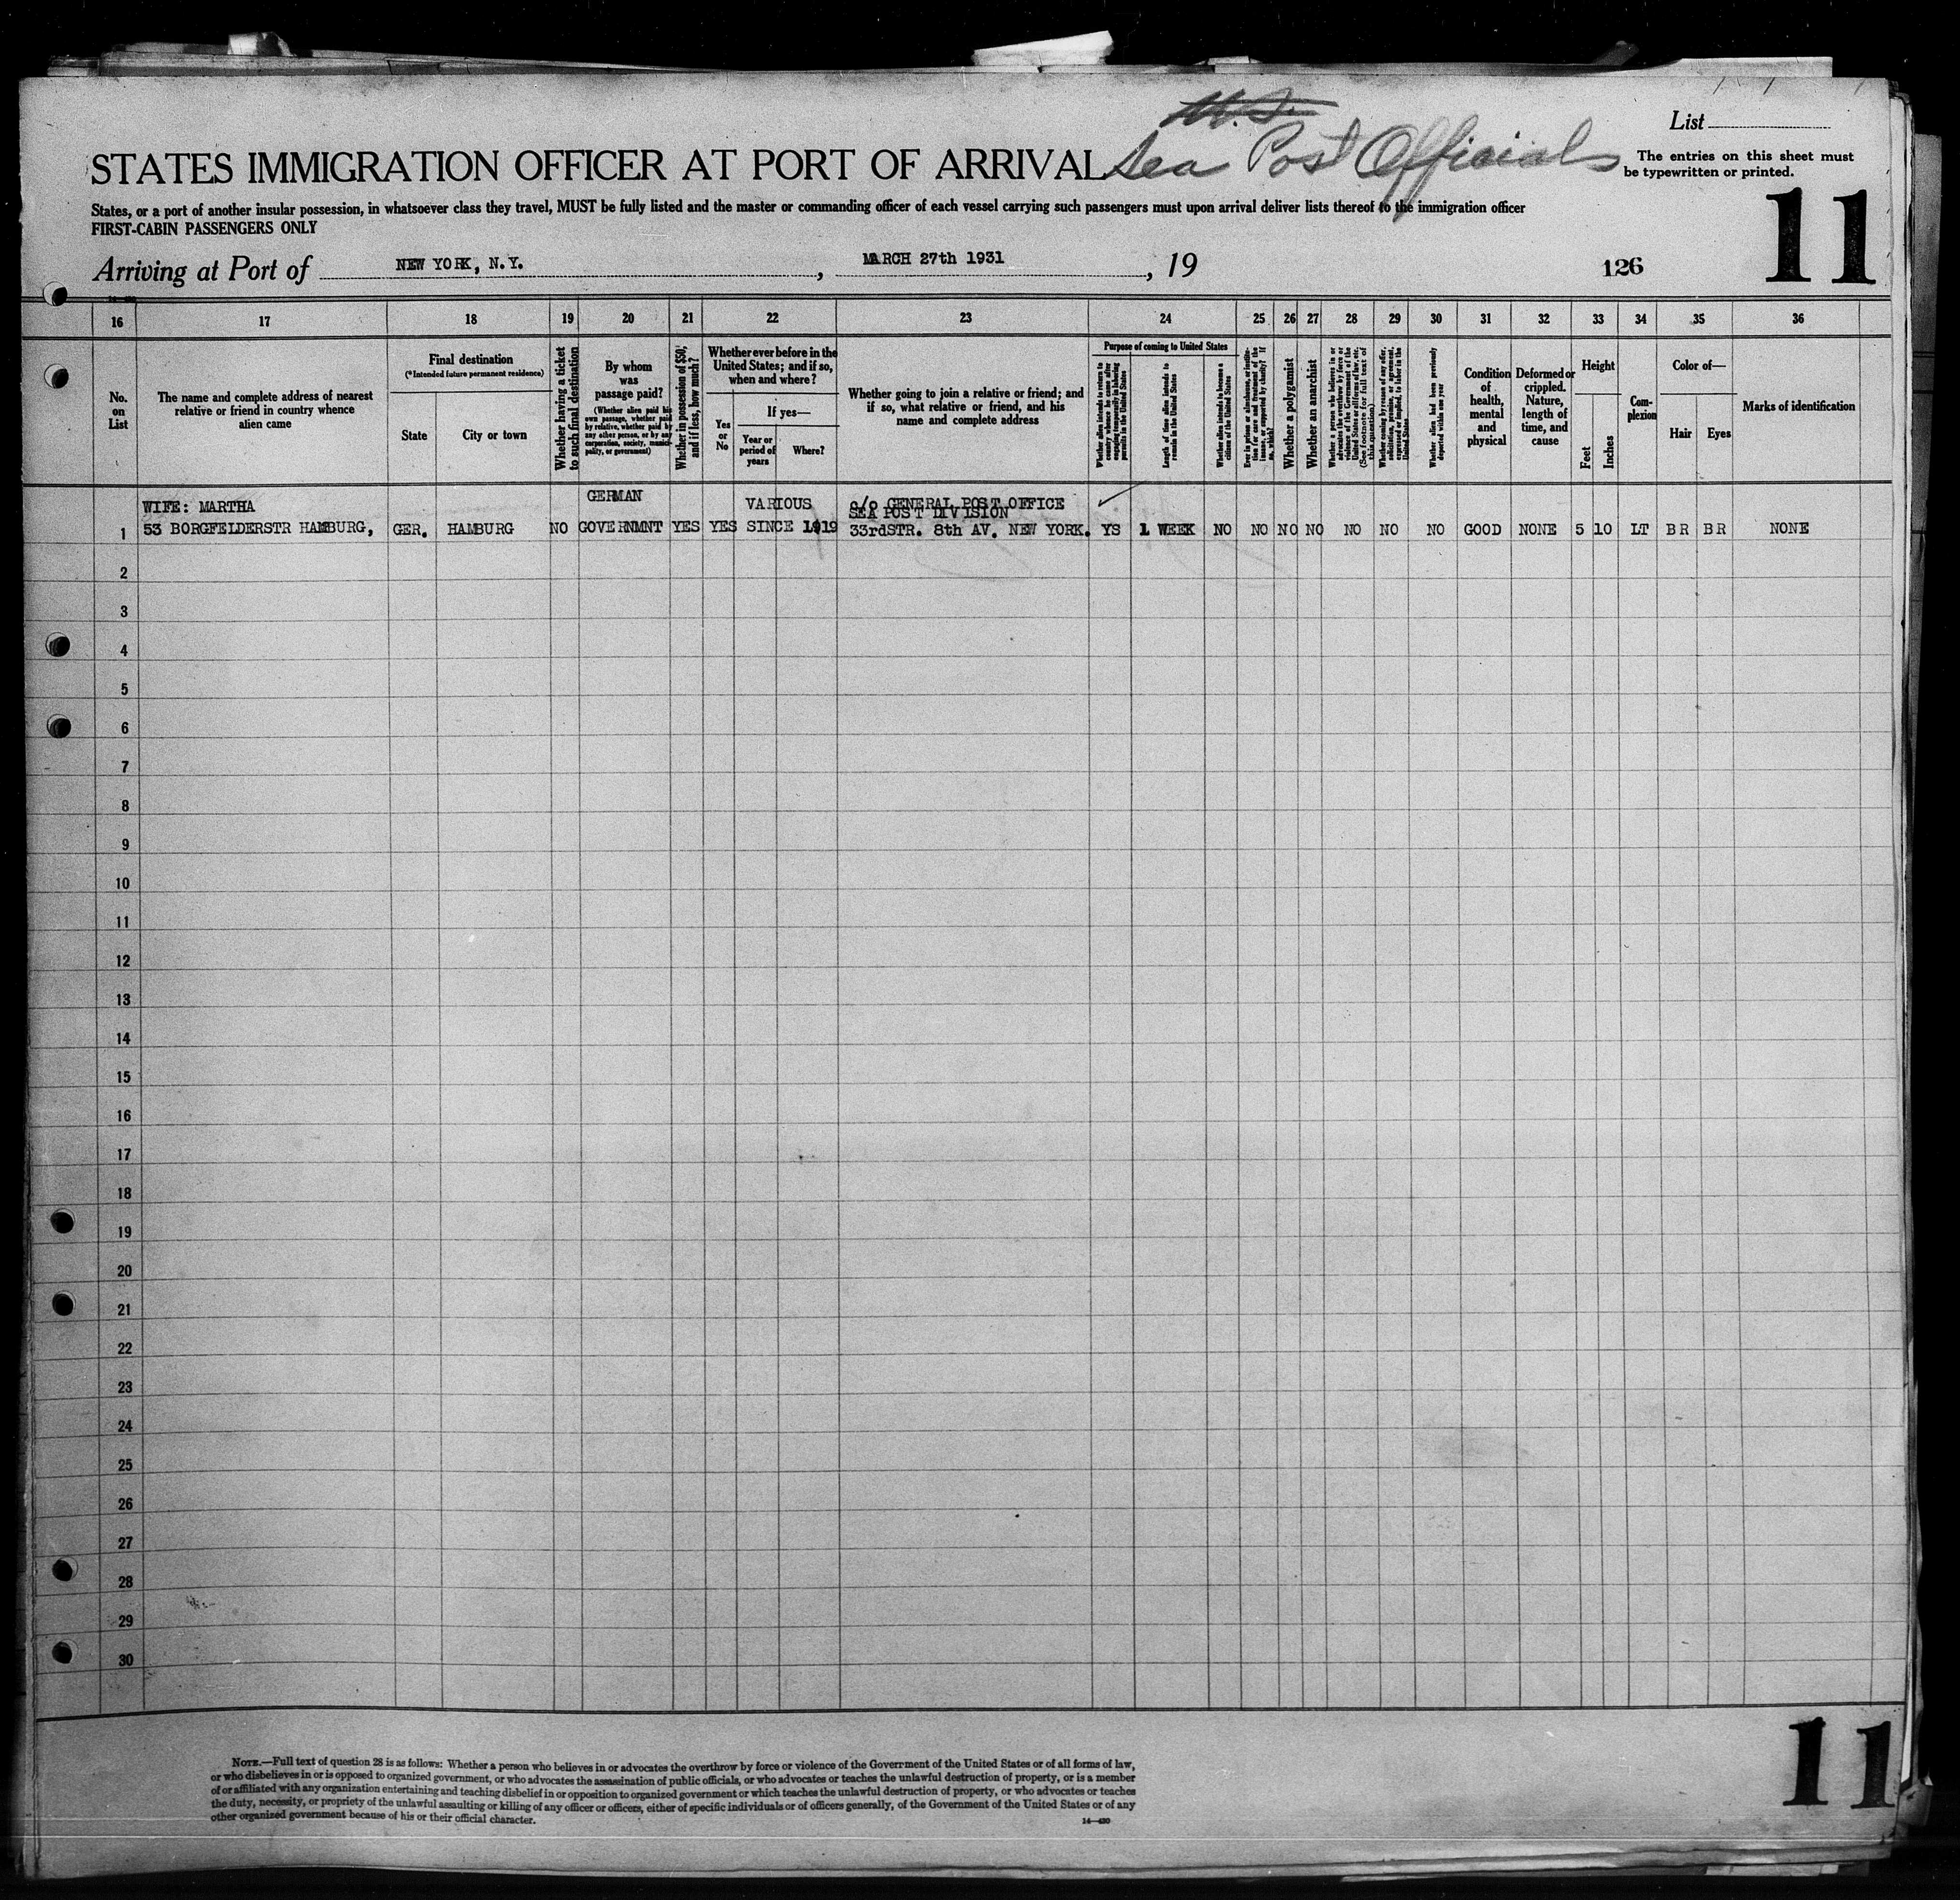 List
STATES IMMIGRATION OFFICER AT PORT OF ARRIVAL Sea Post Officials
The entries on this sheet must
be typewritten or printed.
States, or a port of another insular possession, in whatsoever class they travel, MUST be fully listed and the master or commanding officer of each vessel carrying such passengers must upon arrival deliver lists thereof to the immigration officer
FIRST-CABIN PASSENGERS ONLY
11
Arriving at Port of NEW YORK, N.Y., MARCH 27th 1931, 19
126
16 17 18 19 20 21 22 23 24 25 26 27 28 29 30 31 32 33 34 35 36
No.
on
List
The name and complete address of nearest
relative or friend in country whence
alien came
Final destination
(*Intended future permanent residence)
State
City or town
Whether having a ticket
to such final destination
By whom
was
passage paid?
(Whether alien paid his
own passage, whether paid
by relative, whether paid by
any other person, or by any
corporation, society, munici-
pality, or government)
Whether in possession of $50,
and if less, how much?
Whether ever before in the
United States; and if so,
when and where?
Yes
or
No
If yes—
Year or
period of
years
Where?
Whether going to join a relative or friend; and
if so, what relative or friend, and his
name and complete address
Purpose of coming to United States
Whether alien intends to return to
country whence he came after
engaging temporarily in laboring
pursuits in the United States
Length of time alien intends to
remain in the United States
Whether alien intends to become a
citizen of the United States
Ever in prison or almshouse, or institu-
tion for care and treatment of the
insane, or supported by charity? If
so, which?
Whether a polygamist
Whether an anarchist
Whether a person who believes in or
advocates the overthrow by force or
violence of the Government of the
United States or all forms of law, etc.
(See footnote for full text of
this question)
Whether coming by reason of any offer,
solicitation, promise, or agreement,
expressed or implied, to labor in the
United States
Whether alien had been previously
deported within one year
Condition
of
health,
mental
and
physical
Deformed or
crippled.
Nature,
length of
time, and
cause
Height
Feet
Inches
Com-
plexion
Color of—
Hair
Eyes
Marks of identification
WIFE: MARTHA GERMAN VARIOUS c/o GENERAL POST OFFICE
SEA POST DIVISION
1 53 BORGFELDERSTR HAMBURG, GER. HAMBURG NO GOVERNMNT YES YES SINCE 1919 33rdSTR. 8th AV. NEW YORK. YS 1 WEEK NO NO NO NO NO NO NO GOOD NONE 5 10 LT BR BR NONE
2
3
4
5
6
7
8
9
10
11
12
13
14
15
16
17
18
19
20
21
22
23
24
25
26
27
28
29
30
NOTE.—Full text of question 28 is as follows: Whether a person who believes in or advocates the overthrow by force or violence of the Government of the United States or of all forms of law,
or who disbelieves in or is opposed to organized government, or who advocates the assassination of public officials, or who advocates or teaches the unlawful destruction of property, or is a member
of or affiliated with any organization entertaining and teaching disbelief in or opposition to organized government or which teaches the unlawful destruction of property, or who advocates or teaches
the duty, necessity, or propriety of the unlawful assaulting or killing of any officer or officers, either of specific individuals or of officers generally, of the Government of the United States or of any
other organized government because of his or their official character.
14—430
11